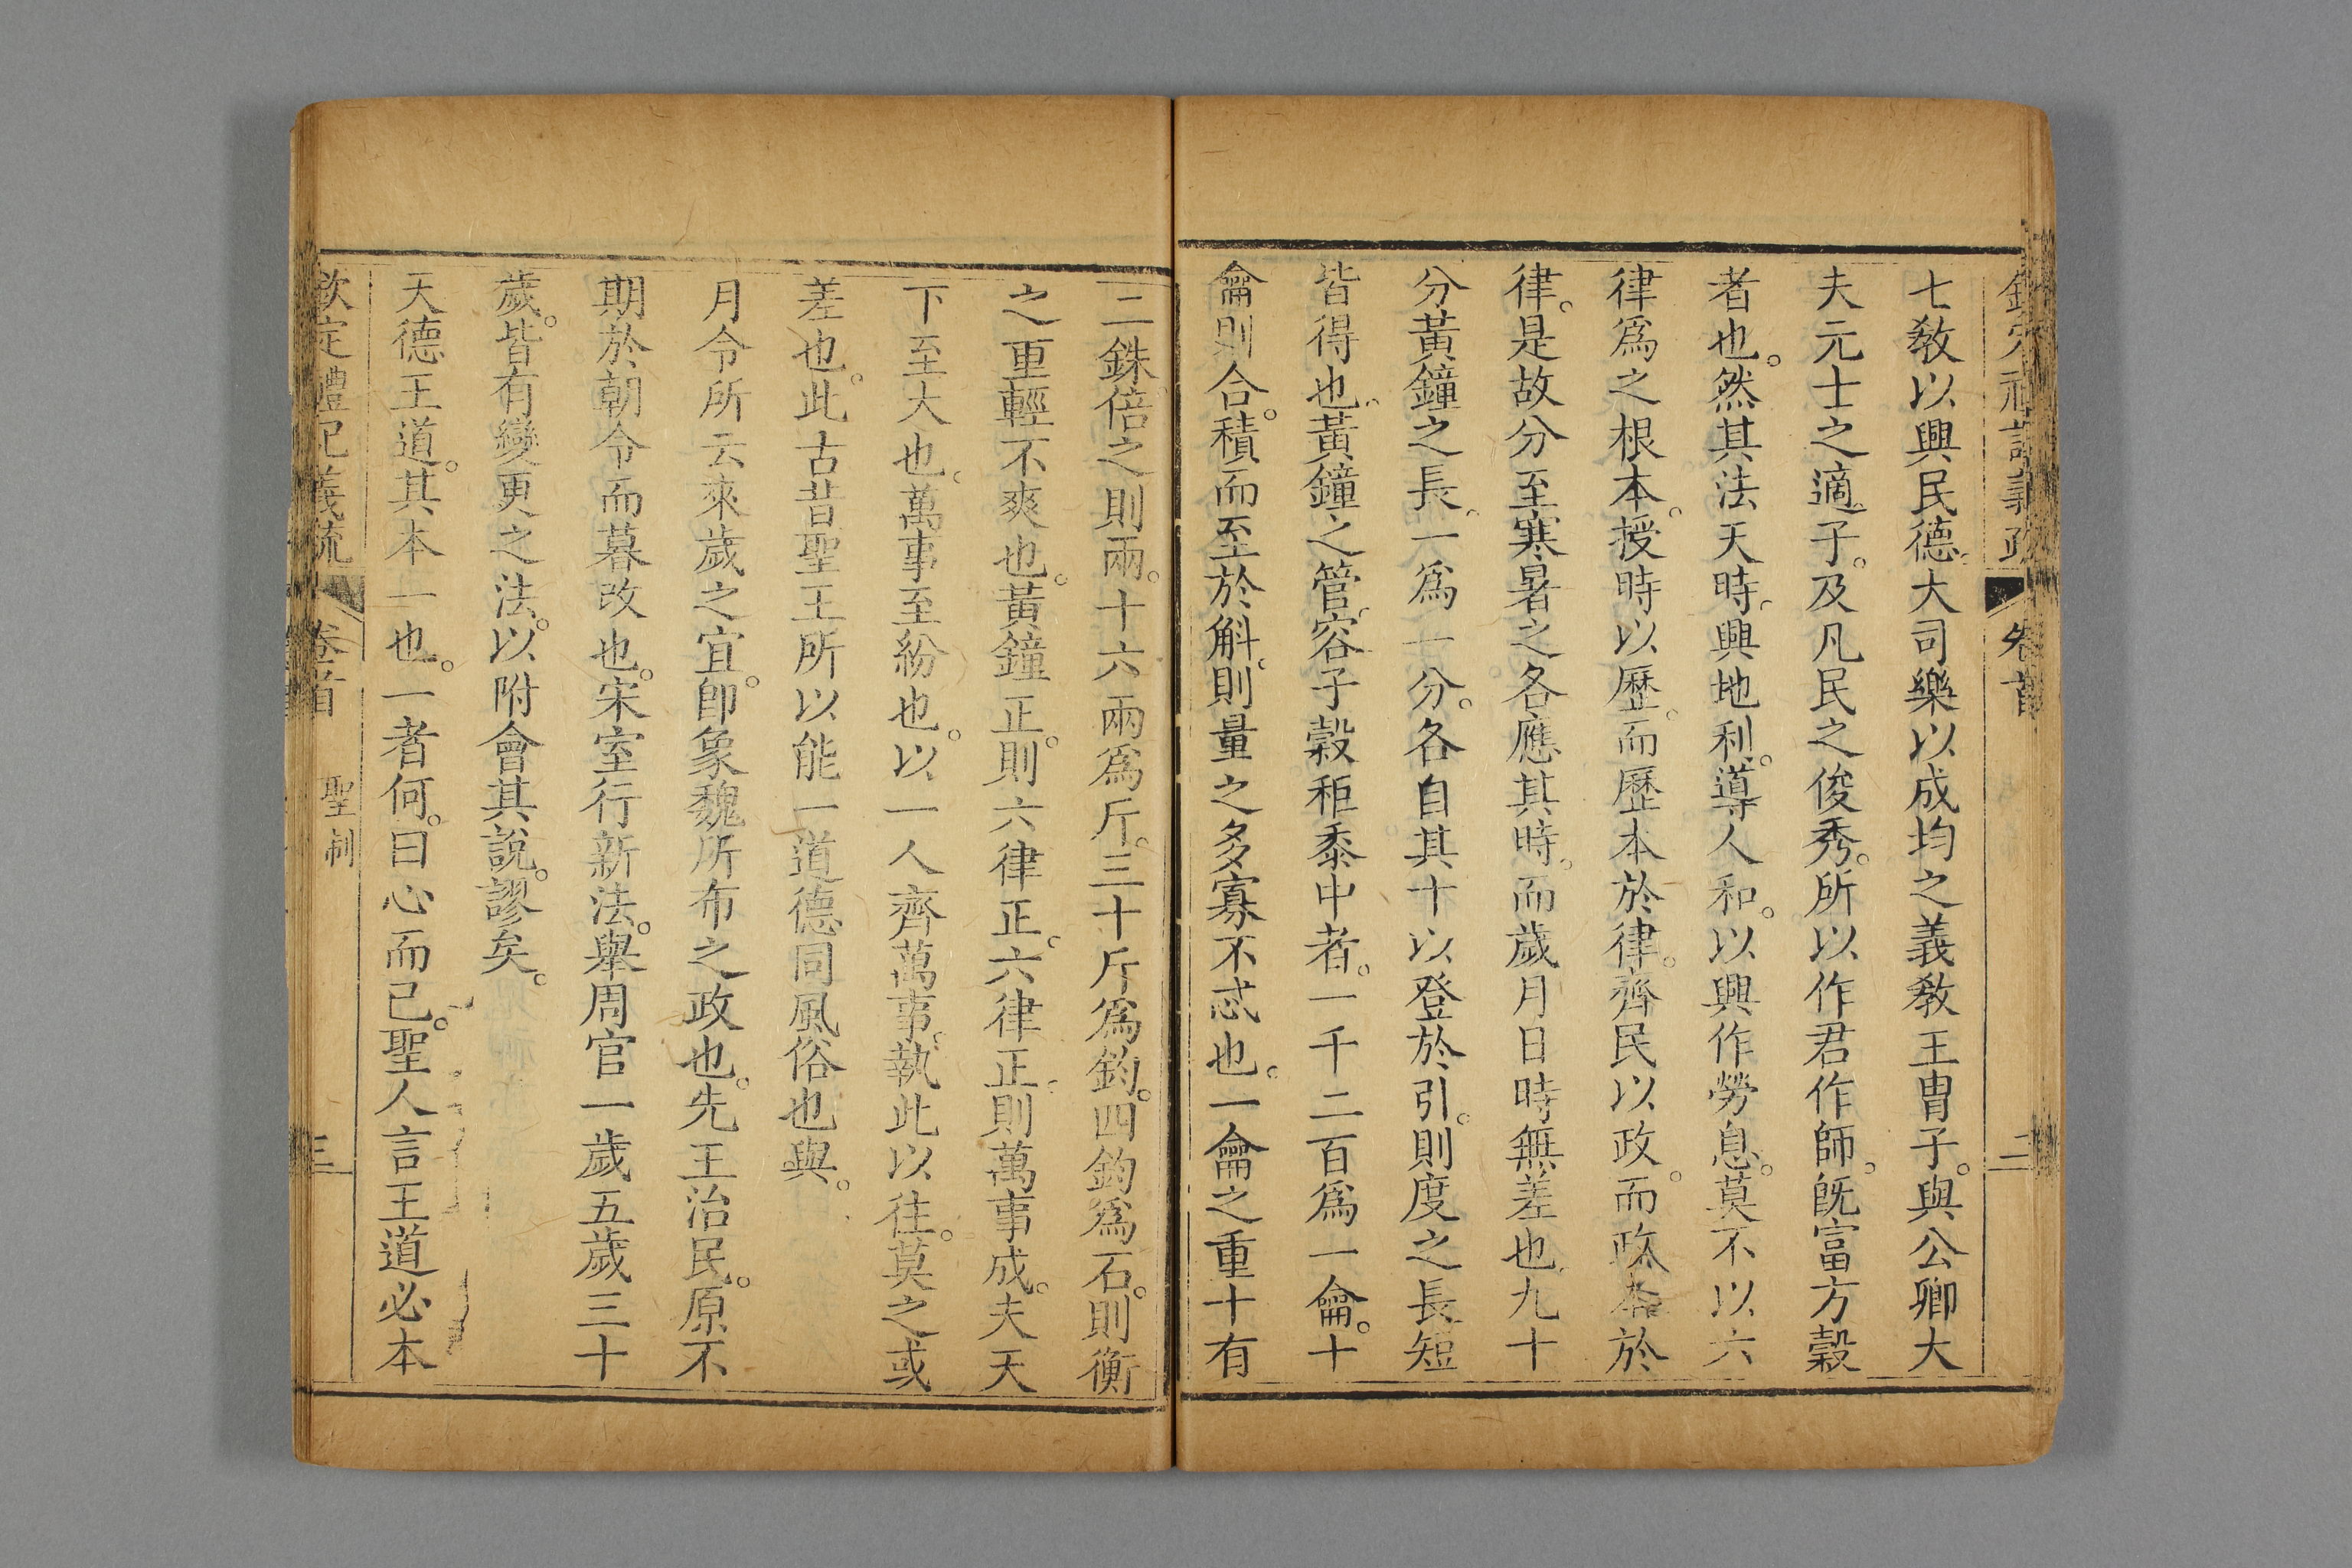 七教以興民德大司樂以成均之義教王冑子。與公卿大
夫元士之適子。及凡民之俊秀。所以作君作師。旣富方穀
者也。然其法天時。興地利。導人和。以興作勞息。莫不以六
律爲之根本。授時以歷。而歷本於律。齊民以政。而政本於
律。是故分至寒暑之各應其時。而歲月日時無差也。九十
分黃鐘之長。一爲一分。各自其十以登於引。則度之長短
皆得也。黃鐘之管。容子穀秬黍中者。一千二百爲一龠。十
龠則合。積而至於斛。則量之多寡不忒也。一龠之重十有
二銖。倍之則兩。十六兩爲斤。三十斤爲鈞。四鈞爲石。則衡
之重輕不爽也。黃鐘正。則六律正。六律正。則萬事成。夫天
下至大也。萬事至紛也。以一人齊萬事。執此以往。莫之或
差也。此古昔聖王所以能一道德同風俗也與。
月令所云來歲之宜。卽象魏所布之政也。先王治民。原不
期於朝令而暮改也。宋室行新法。舉周官一歲五歲三十
歲。皆有變更之法。以附會其說。謬矣。
天德王道。其本一也。一者何。曰心而已。聖人言王道必本
欽定禮記義疏 卷首 聖制 三